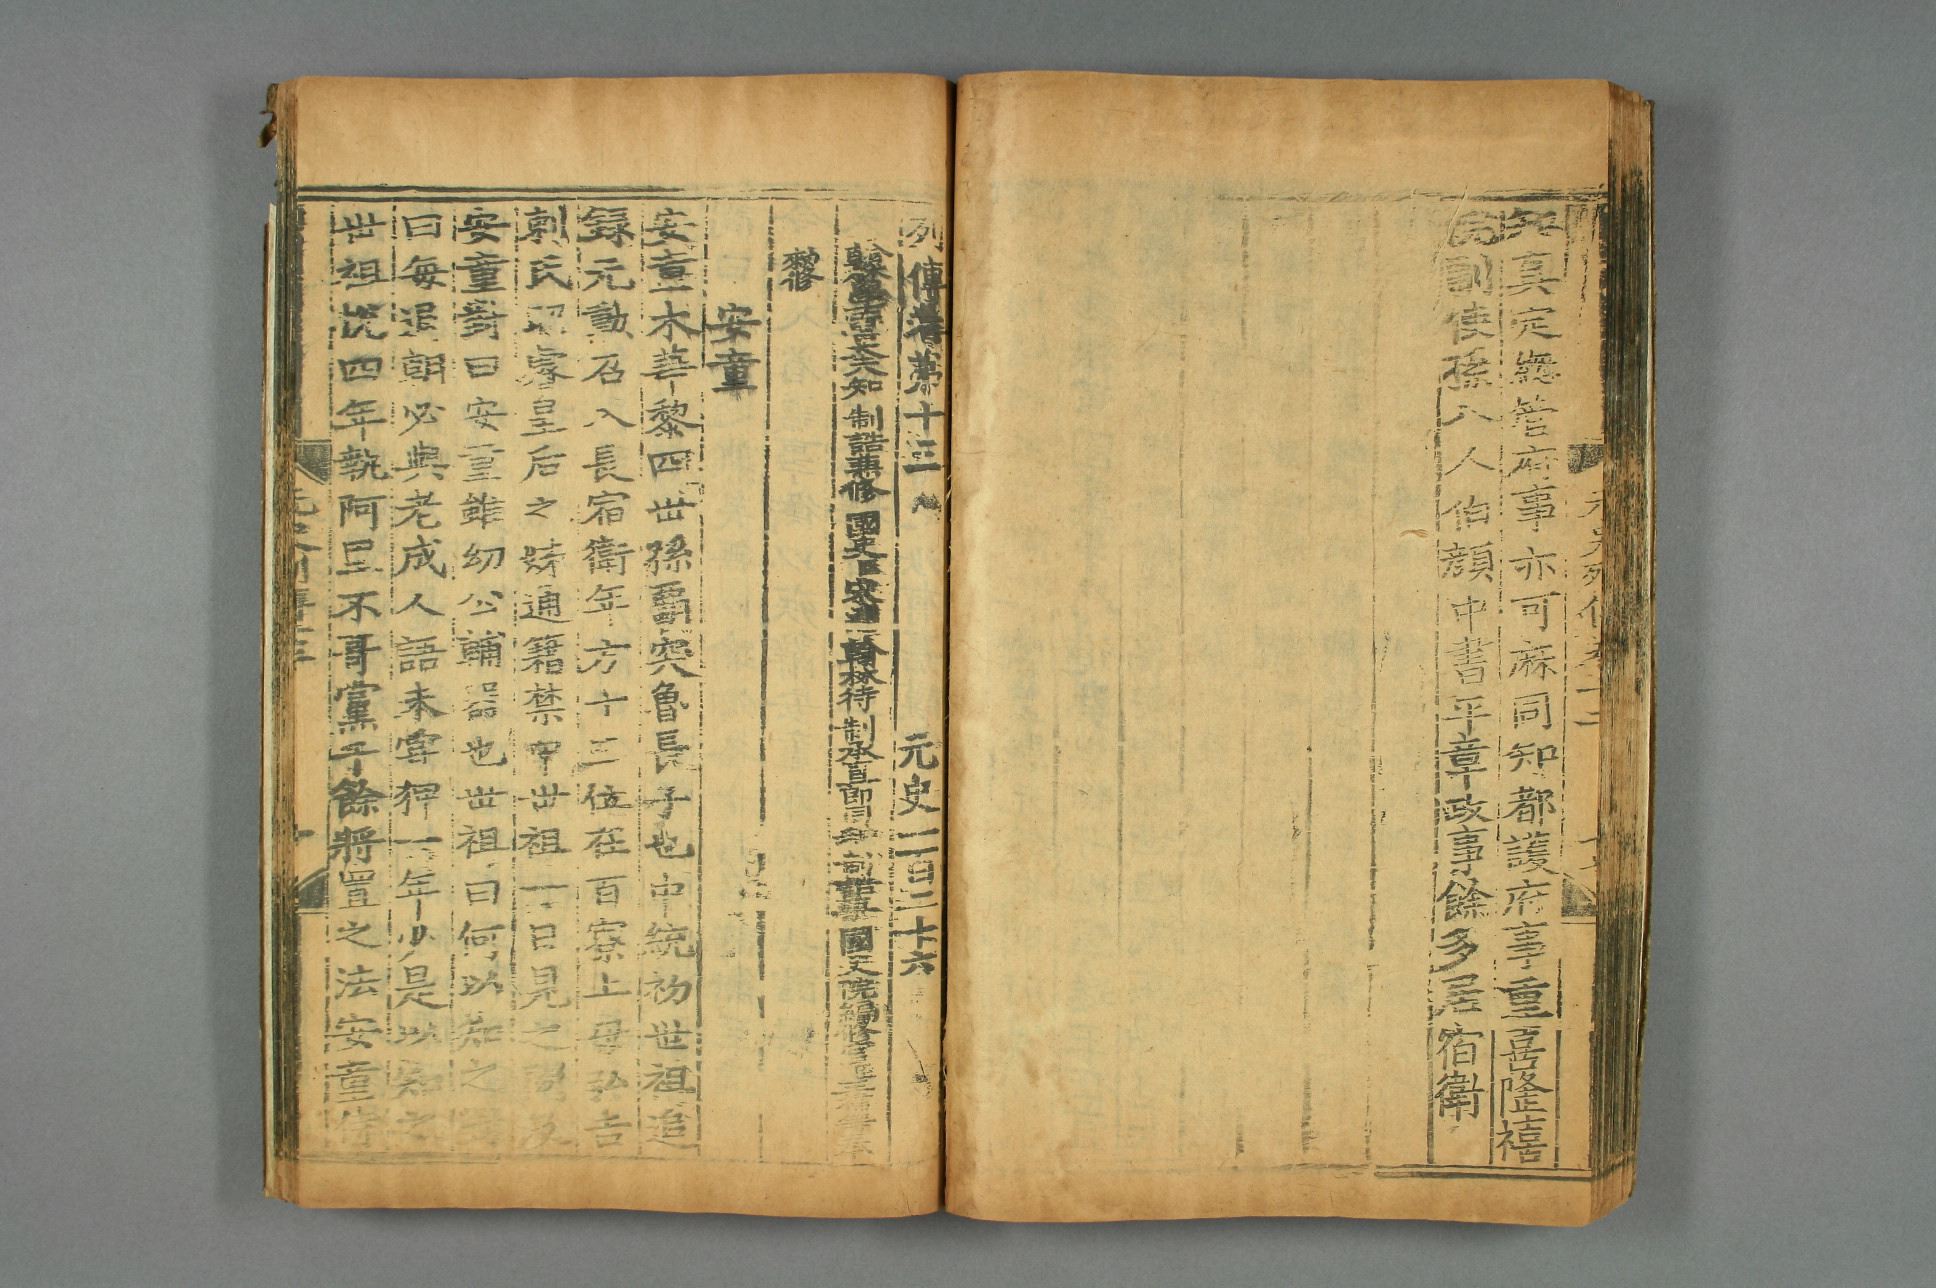 真定總管府事亦可麻同知都護府事重喜隆禧
院副使孫八人伯顏中書平章政事餘多居宿衛
元史列傳卷十二
列傳卷第十三 元史一百二十六
翰林學士亞中大夫知制誥兼修國史臣宋濂翰林待制承直郎同知制誥兼國史院編修官臣王禕等奉
敕修
安童
安童木華黎四世孫霸突魯長子也中統初世祖追
錄元勳召入長宿衛年方十三位在百寮上母弘吉
剌氏昭睿皇后之姊通籍禁中世祖一日見之問及
安童對曰安童雖幼公輔器也世祖曰何以知之對
曰每退朝必與老成人語未嘗狎一年少是以知之
世祖悅四年執阿里不哥黨千餘將置之法安童侍